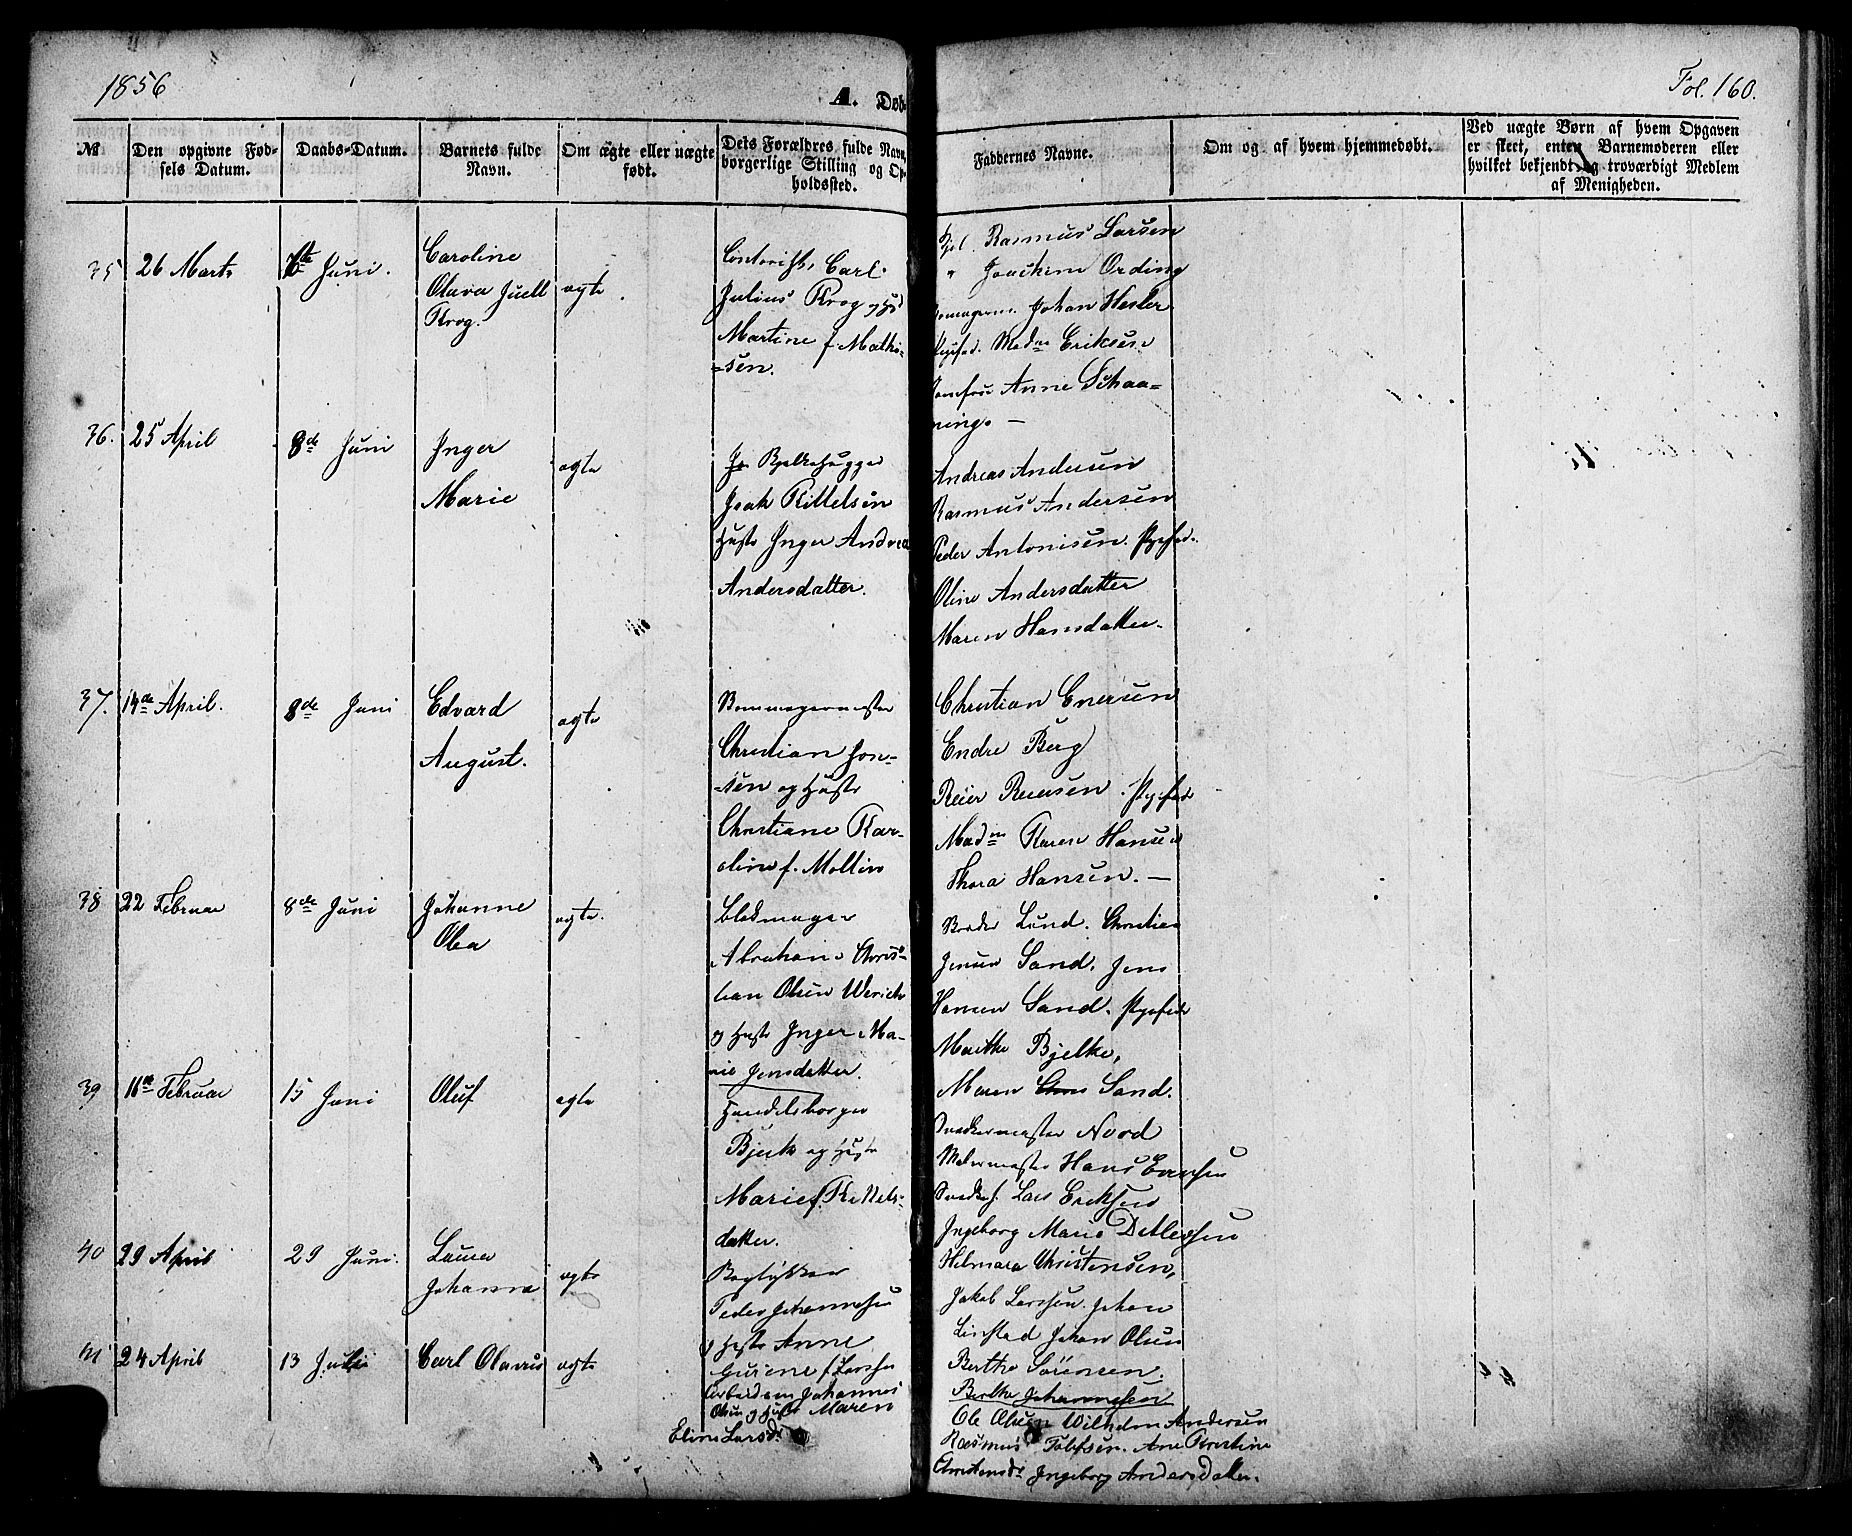 1856
A. Døb-
Fol. 160.
№
Den opgivne Fød-
sels Datum.
Daabs-Datum.
Barnets fulde
Navn.
Om ægte eller uægte
født.
Dets Forældres fulde Navn,
borgerlige Stilling og Op-
holdssted.
Faddernes Navne.
Om og af hvem hjemmedøbt.
Ved uægte Børn af hvem Opgaven
er skeet, enten Barnemoderen eller
hvilket bekjendt og troværdigt Medlem
af Menigheden.
35
26 Marts
Juni.
Caroline
Olava Juell
Krog.
ægte
Contorist Carl
Julius Krog og
Martine f. Mathi-
=sen.
Rasmus Larsen
" Joachim Ording
Johan Hesler
Madme Eriksen
Jomfru Anne Schaa-
ning. —
36.
25 April
8de Juni
Inger
Marie
ægte
Bjelkehugger
Isak Kittelsen
Hustr Inger Andrea
Andersdatter.
Andreas Andersen
Rasmus Andersen
Peder Antonisen. Pigefad.
Oline Andersdatter
Maren Hansdatter.
37.
14de April.
8de Juni
Edvard
August.
ægte
Christian Jon-
=sen og Hustr
Christiane Kar-
oline f. Moltin
Christian Enersen
Endre Berg
Reier Reiersen. Pigefadr
Madme Karen Hansen
Thora Hansen. —
38
22 Februar
8de Juni
Johanne
Olea
ægte.
Blokmager
Abraham Chris-
tian Olsen
og Hustr Inger Ma-
rie Jensdatter.
Lund. Christian
Jensen Sand. Jens
Hansen Sand. Pigefadr
Marthe Bjelke,
Maren Sand.
39
11te Februar
15 Juni
Oluf
ægte
Handelsborger
Bjerk og Hustr
Marie f. Kittels-
datter.
Snedkermester Nord
Malermester Hans Evensen
Snedker. Lars Eriksen
Ingeborg Marie Detlefsen
Helmara Christensen,
40
29 April
29 Juni.
Laura
Johanne
ægte
Bogtykker
Peder Johannesen
og Hustr Anne
Gurine f. Larssen
Jakob Larssen. Johan
Linstad Johan Olsen
Berthe Sörensen.
Berthe Johannesen
41
24 April
13 Juli
Carl Olavus
ægte
Arbeidsm Johannes
Olsen og Hustr Maren
Eline Larsdr
Ole Olsen Wilhelm Andersen
Rasmus Tollefsen. Ane Kirstine
Christensdr Ingeborg Andersdatter.